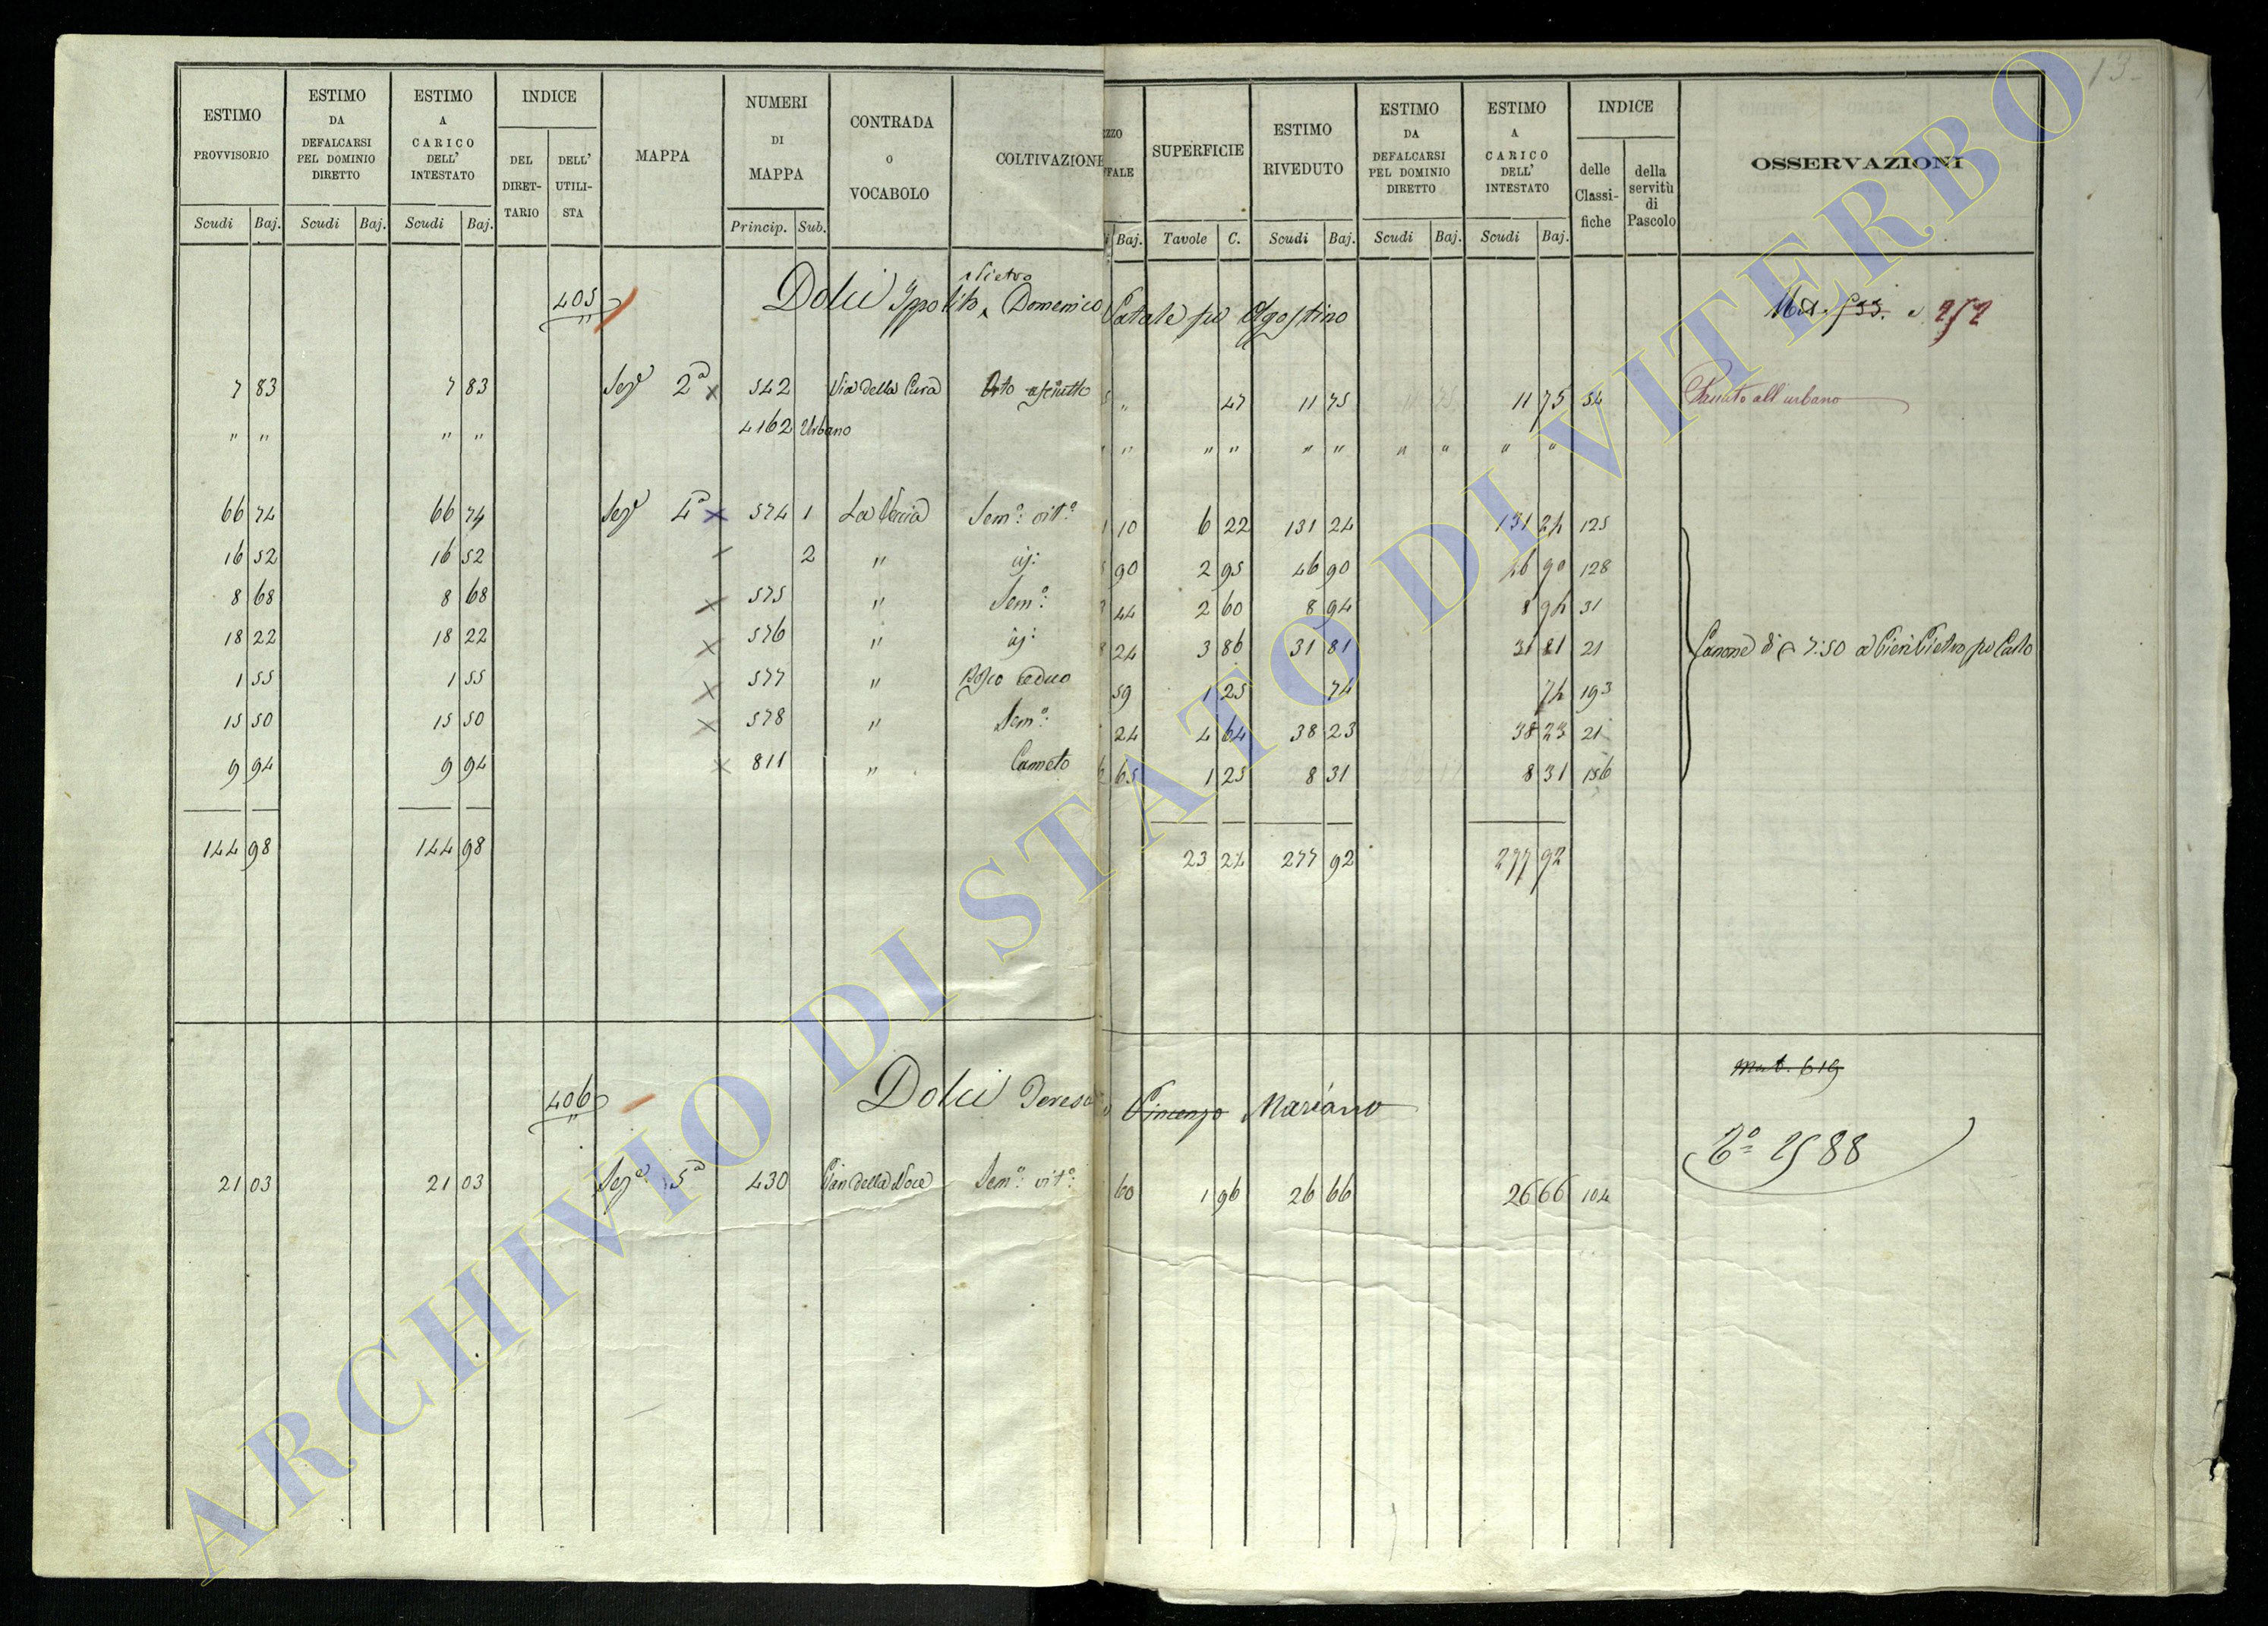 13
ESTIMO PROVVISORIO | ESTIMO DA DEFALCARSI PEL DOMINIO DIRETTO | ESTIMO A CARICO DELL' INTESTATO | INDICE | MAPPA | NUMERI DI MAPPA | CONTRADA O VOCABOLO | COLTIVAZIONE | SUPERFICIE | ESTIMO RIVEDUTO | ESTIMO DA DEFALCARSI PEL DOMINIO DIRETTO | ESTIMO A CARICO DELL' INTESTATO | INDICE | OSSERVAZIONI
DEL DIRET-TARIO | DELL' UTILI-STA | delle Classi-fiche | della servitù di Pascolo
Scudi | Baj. | Scudi | Baj. | Scudi | Baj. | Princip. | Sub. | Baj. | Tavole | C. | Scudi | Baj. | Scudi | Baj. | Scudi | Baj.
Pietro
405 Dolci Ippolito, Domenico Natale fu Agostino 252
7 83 7 83 Sez.e 2a 542 Via della Cura Orto asciutto " 47 11 75 11 75 54 Passato all'urbano
" " " " 4162 Urbano " " " " " " " " "
66 74 66 74 Sez.e 4a 574 1 Sem.o vit.o 10 6 22 131 24 131 24 125
16 52 16 52 2 " id: 90 2 95 46 90 46 90 128
8 68 8 68 575 " Sem.o: 44 2 60 8 94 8 94 31
18 22 18 22 576 " id: 24 3 86 31 81 31 81 21 Canone di 7:50 a Pieri Pietro fu Carlo
1 55 1 55 577 " Bosco ceduo 59 1 25 74 74 193
15 50 15 50 578 " Sem.o: 24 4 64 38 23 38 23 21
9 94 9 94 811 " Canneto 65 1 25 8 31 8 31 156
144 98 144 98 23 24 277 92 277 92
Mat. 619
406 Dolci Teresa Vincenzo Mariano
2588
21 03 21 03 Sez.e 5a 430 Pian della Noce Sem.o vit.o 60 1 96 26 66 26 66 104
ARCHIVIO DI STATO DI VITERBO